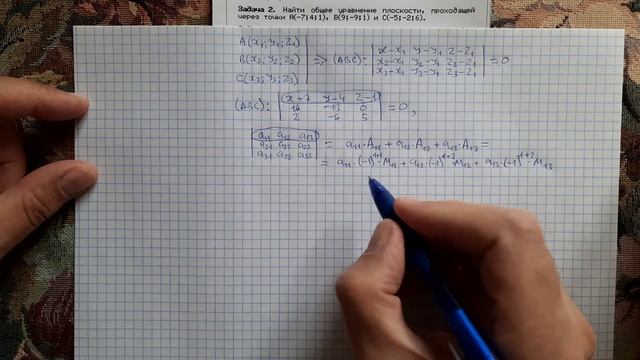 Задача 2. Найти общее уравнение плоскости, проходящей
через точки A(-7;4;1), B(9;-9;1) и C(-5;-2;6).
A(x₁; y₁; z₁)
B(x₂; y₂; z₂) => (ABC): | x-x₁ y-y₁ z-z₁ | = 0
C(x₃; y₃; z₃) | x₂-x₁ y₂-y₁ z₂-z₁ |
| x₃-x₁ y₃-y₁ z₃-z₁ |
(ABC): | x+7 y-4 z-1 | = 0,
| 16 -13 0 |
| 2 -6 5 |
| a₁₁ a₁₂ a₁₃ | = a₁₁·A₁₁ + a₁₂·A₁₂ + a₁₃·A₁₃ =
| a₂₁ a₂₂ a₂₃ |
| a₃₁ a₃₂ a₃₃ |
= a₁₁·(-1)¹⁺¹·M₁₁ + a₁₂·(-1)¹⁺²·M₁₂ + a₁₃·(-1)¹⁺³·M₁₃